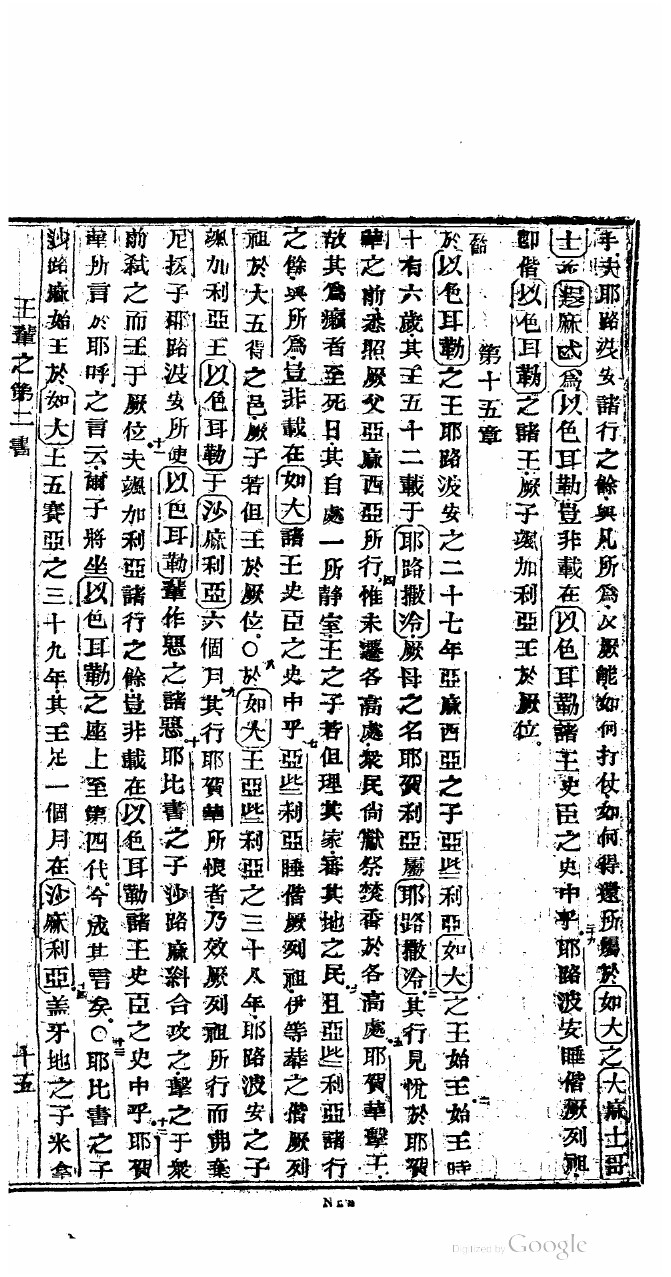 手夫耶路波安諸行之餘與凡所為及厥能如何打仗如何得還所屬於如大之大麻士哥
士並慝麻忒為以色耳勒豈非載在以色耳勒諸王史臣之史中乎二十九耶路波安睡偕厥列祖
即偕以色耳勒之諸王厥子颯加利亞王於厥位。
第十五章
於以色耳勒之王耶路波安之二十七年亞麻西亞之子亞些利亞如大之王始王二始王時
十有六歲其王五十二載于耶路撒冷厥母之名耶賀利亞屬耶路撒冷三其行見悅於耶賀
華之前悉照厥父亞麻西亞所行四惟未遷各高處衆民尚獻祭焚香於各高處五耶賀華擊王
故其為癩者至死日其自處一所靜室王之子若但理其家審其地之民六且亞些利亞諸行
之餘與所為豈非載在如大諸王史臣之史中乎七亞些利亞睡偕厥列祖伊等葬之偕厥列
祖於大五得之邑厥子若但王於厥位〇八於如大王亞些利亞之三十八年耶路波安之子
颯加利亞王以色耳勒于沙麻利亞六個月九其行耶賀華所恨者乃效厥列祖所行而弗棄
尼拔子耶路波安所使以色耳勒輩作惡之諸惡十耶比書之子沙路麻糾合攻之擊之于衆
前弒之而王于厥位十一夫颯加利亞諸行之餘豈非載在以色耳勒諸王史臣之史中乎十二耶賀
華所言於耶呼之言云爾子將坐以色耳勒之座上至第四代今成其言矣〇十三耶比書之子
沙路麻始王於如大王五賽亞之三十九年其王足一個月在沙麻利亞十四蓋牙地之子米拿
王輩之第二書
十五
Digitized by Google